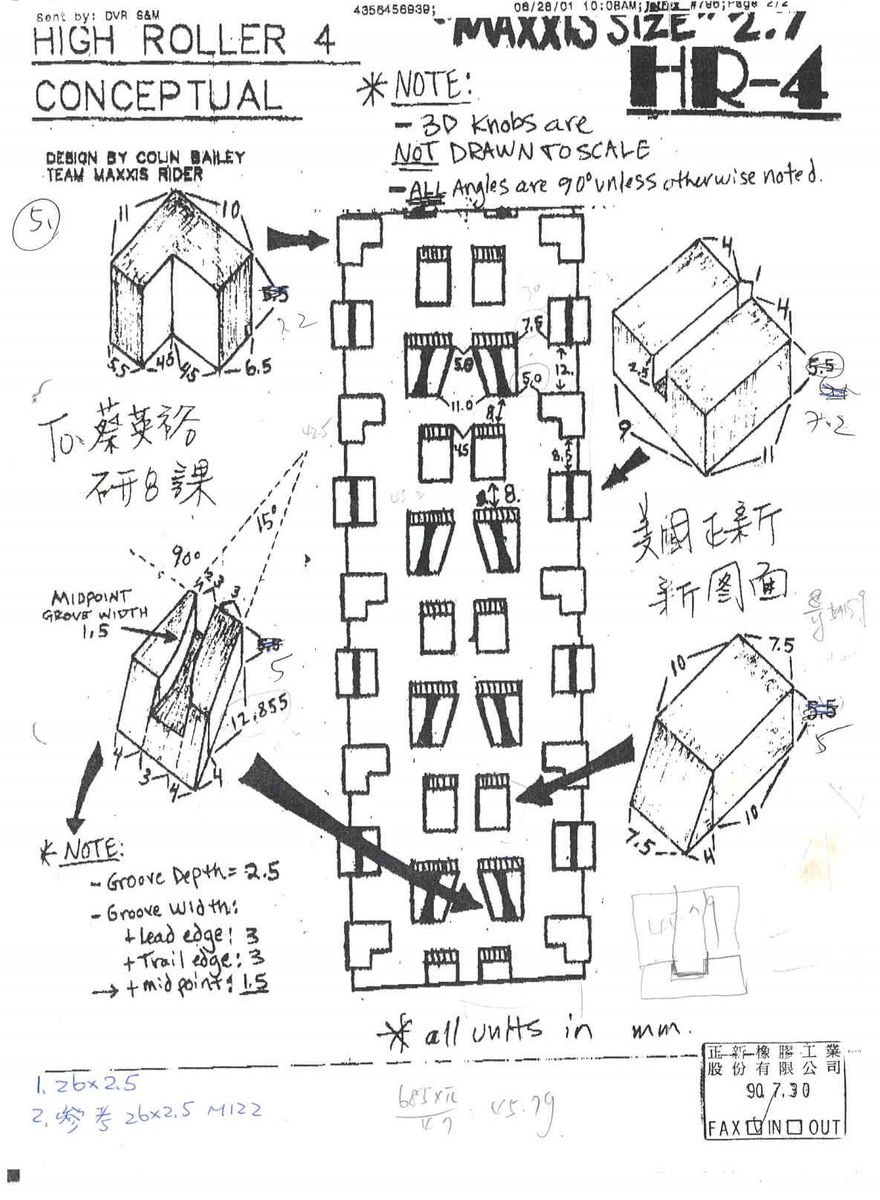 Sent by: DVR S&M 4356456939; 06/28/01 10:08AM; #796; Page 2/2
HIGH ROLLER 4
CONCEPTUAL
"MAXXIS SIZE" 2.7
HR-4
DESIGN BY COLIN BAILEY
TEAM MAXXIS RIDER
* NOTE:
- 3D Knobs are
NOT DRAWN TO SCALE
- ALL Angles are 90° unless otherwise noted.
5.
11
10
5.5
5.5
4.5
6.5
7.5
5.0
12.
5.0
11.0
8.
4.5
8.5
8.
4
1
4
2.5
5.5
7.2
9
11
To. 蔡英裕
研8課
425
15°
90°
MIDPOINT
GROVE WIDTH
1.5
3
3
5
12.855
4
3
4
4
美國正新
新圖面
10
7.5
5.5
5
10
7.5
4
* NOTE:
- Groove Depth = 2.5
- Groove Width:
+ Lead edge: 3
+ Trail edge: 3
→ + midpoint: 1.5
45.79
* all units in mm.
1. 26x2.5
2. 參考 26x2.5 M122
685xπ
47
45.79
正新橡膠工業
股份有限公司
90.7.30
FAX ☑ IN ☐ OUT